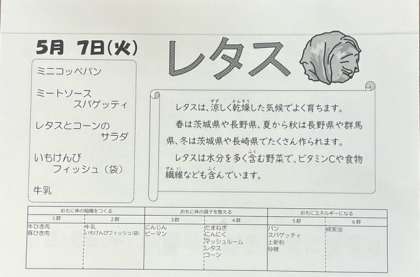 5月 7日(火)
レタス
ミニコッペパン
ミートソース
スパゲッティ
レタスとコーンの
サラダ
いもけんぴ
フィッシュ(袋)
牛乳
レタスは、涼しく乾燥した気候でよく育ちます。
春は茨城県や長野県、夏から秋は長野県や群馬
県、冬は茨城県や長崎県でたくさん作られます。
レタスは水分を多く含む野菜で、ビタミンCや食物
繊維なども含んでいます。
おもに体の組織をつくる おもに体の調子を整える おもにエネルギーになる
1群 2群 3群 4群 5群 6群
牛ひき肉 牛乳 にんじん たまねぎ パン
豚ひき肉 いもけんぴフィッシュ(袋) ピーマン にんにく スパゲッティ
マッシュルーム 上新粉
レタス 砂糖
コーン